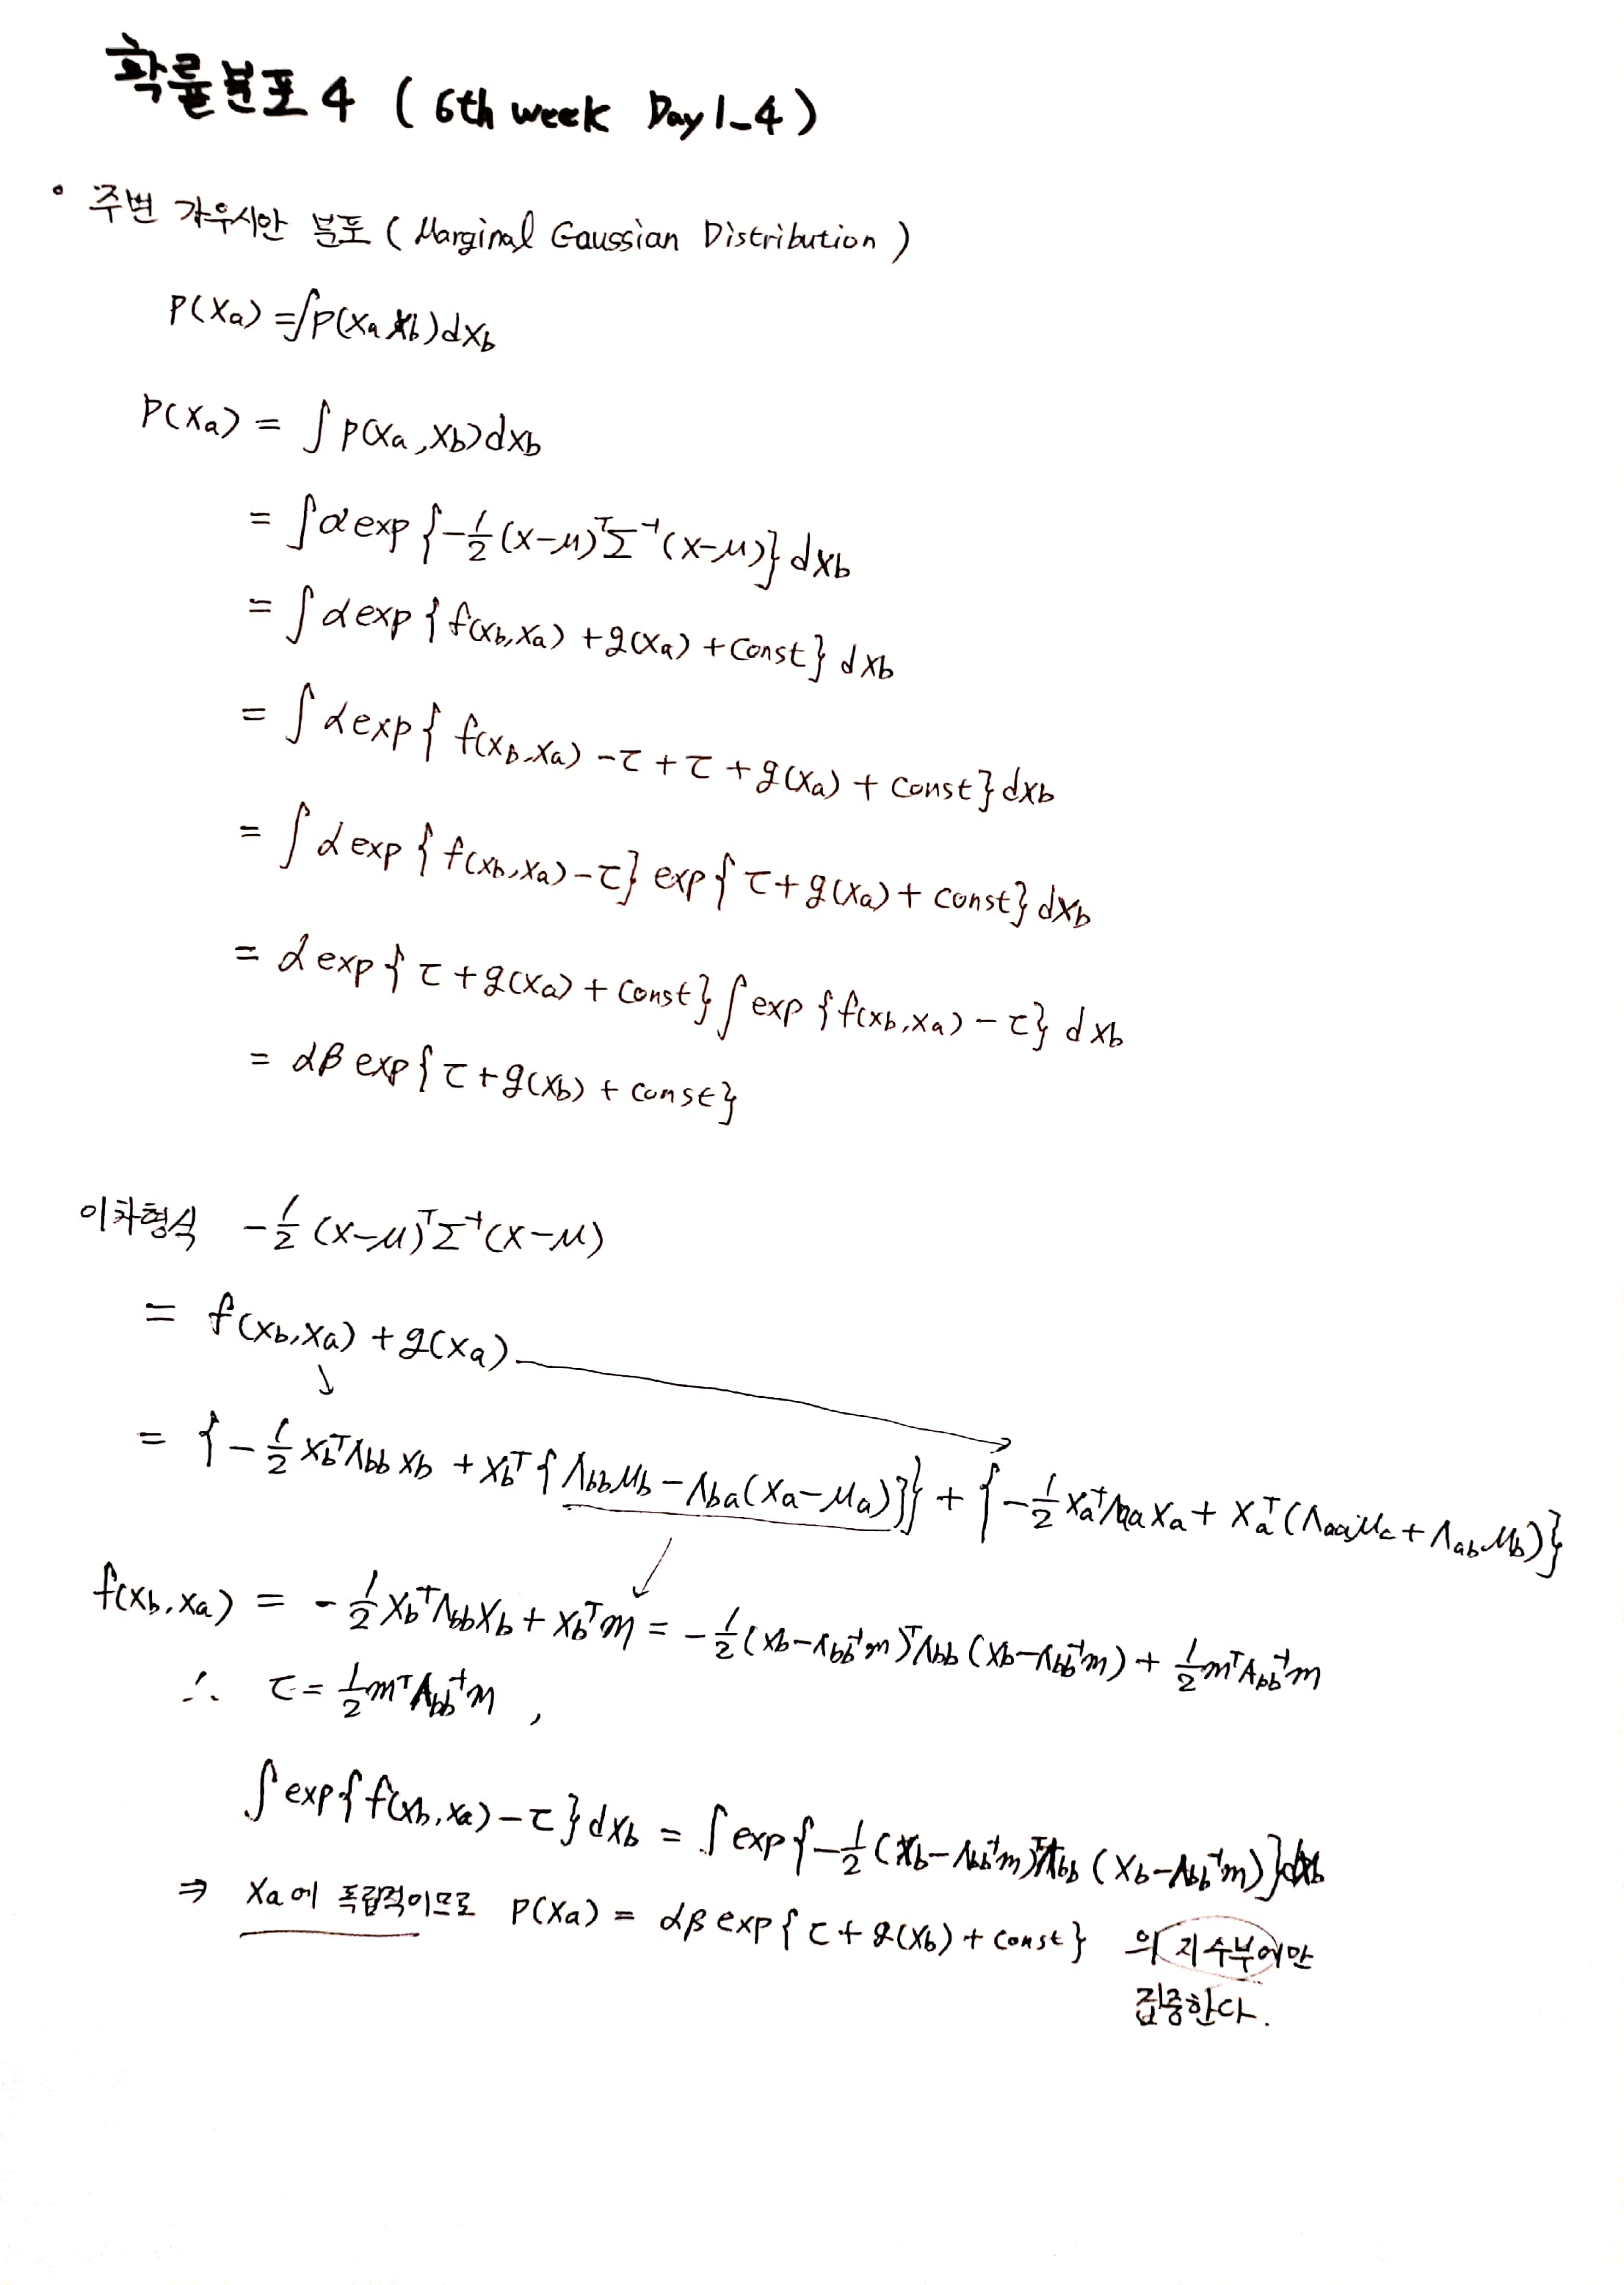 확률분포 4 ( 6th week Day 1_4 )
• 주변 가우시안 분포 ( Marginal Gaussian Distribution )
P(Xa) = ∫p(Xa Xb)dXb
P(Xa) = ∫ p(Xa, Xb)dXb
= ∫α exp {-1/2 (X-μ)ᵀΣ⁻¹(X-μ)} dXb
= ∫ α exp { f(Xb, Xa) + g(Xa) + Const } dXb
= ∫ α exp { f(Xb, Xa) - τ + τ + g(Xa) + Const } dXb
= ∫ α exp { f(Xb, Xa) - τ} exp { τ + g(Xa) + Const } dXb
= α exp { τ + g(Xa) + Const } ∫ exp { f(Xb, Xa) - τ} dXb
= αβ exp { τ + g(Xb) + Const }
이차형식 -1/2 (X-μ)ᵀΣ⁻¹(X-μ)
= f(Xb, Xa) + g(Xa)
↓
= { -1/2 XbᵀΛbb Xb + Xbᵀ { Λbbμb - Λba(Xa-μa)}} + { -1/2 XaᵀΛaa Xa + Xaᵀ (Λaaμa + Λabμb)}
f(Xb, Xa) = -1/2 XbᵀΛbbXb + Xbᵀm = -1/2 (Xb-Λbb⁻¹m)ᵀΛbb (Xb-Λbb⁻¹m) + 1/2 mᵀΛbb⁻¹m
∴ τ = 1/2 mᵀΛbb⁻¹m ,
∫ exp { f(Xb, Xa) - τ } dXb = ∫ exp { -1/2 (Xb-Λbb⁻¹m)ᵀΛbb (Xb-Λbb⁻¹m)} dXb
⇒ Xa에 독립적이므로 P(Xa) = αβ exp { τ + g(Xb) + Const } 의 지수부에만
집중한다.